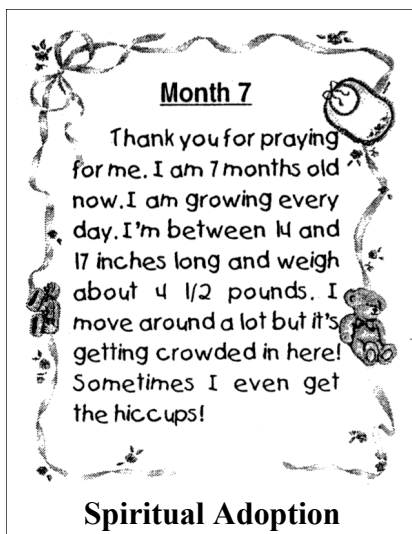 Month 7
Thank you for praying
for me. I am 7 months old
now. I am growing every
day. I'm between 14 and
17 inches long and weigh
about 4 1/2 pounds. I
move around a lot but it's
getting crowded in here!
Sometimes I even get
the hiccups!
Spiritual Adoption